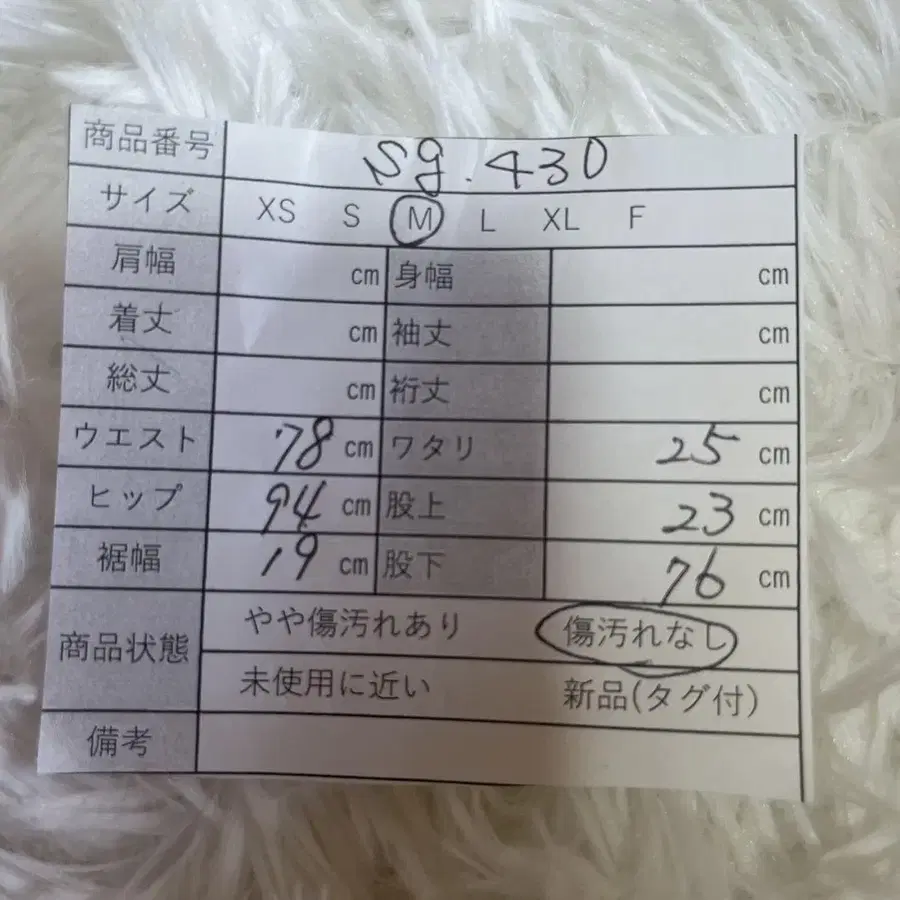 商品番号 Sg.430
サイズ XS S M L XL F
肩幅 cm 身幅 cm
着丈 cm 袖丈 cm
総丈 cm 裄丈 cm
ウエスト 78 cm ワタリ 25 cm
ヒップ 94 cm 股上 23 cm
裾幅 19 cm 股下 76 cm
商品状態 やや傷汚れあり 傷汚れなし
未使用に近い 新品(タグ付)
備考